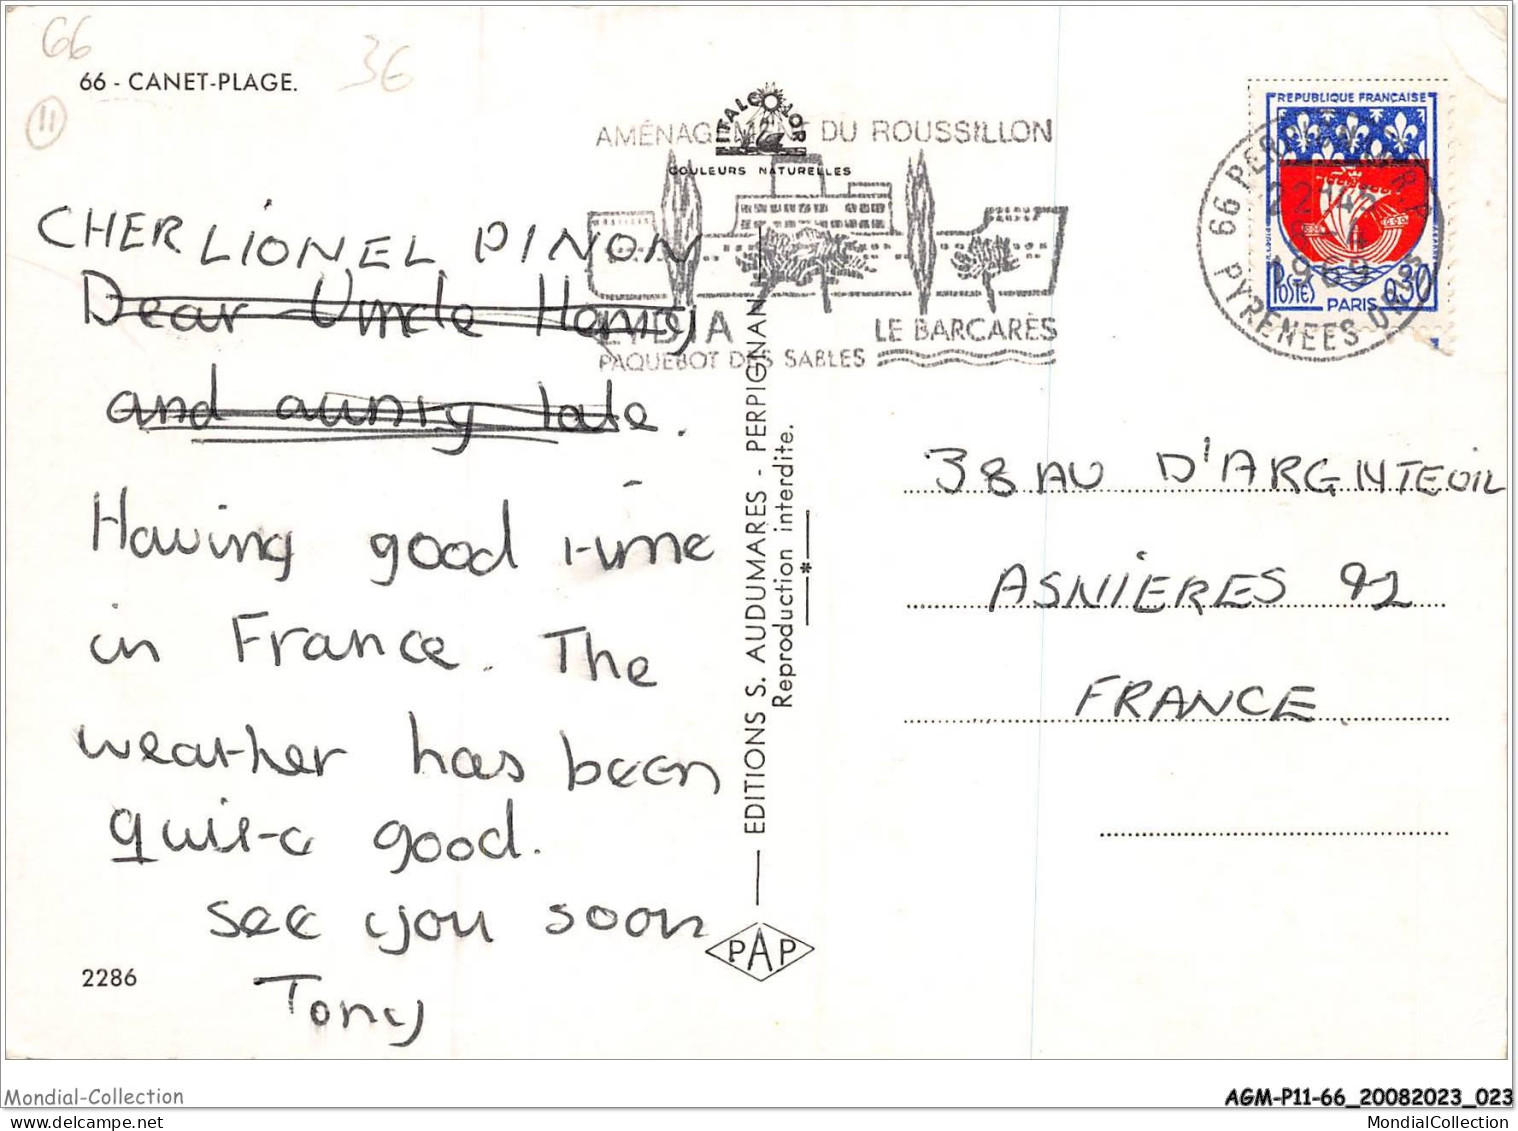 66
36
66 - CANET-PLAGE.
11
ITALCOLOR
COULEURS NATURELLES
AMÉNAGEMENT DU ROUSSILLON
LE BARCARÈS
PAQUEBOT DES SABLES
REPUBLIQUE FRANÇAISE
POSTES
PARIS 0,30
66 PERPIGNAN
PYRENEES OR
CHER LIONEL PINON
Dear Uncle Henry
and aunty Kate.
Having good time
in France. The
weather has been
quite good.
see you soon
Tony
2286
EDITIONS S. AUDUMARES - PERPIGNAN
Reproduction interdite.
PAP
38 AU D'ARGNTEUIL
ASNIERES 92
FRANCE.
Mondial-Collection
AGM-P11-66_20082023_023
MondialCollection